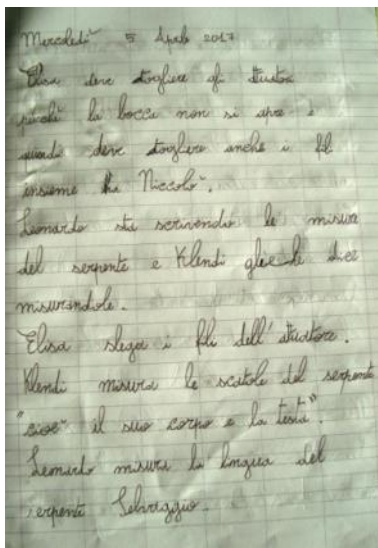 Mercoledì 5 Aprile 2017
Elisa deve togliere gli
perchè la bocca non si apre e
quindi deve togliere anche i fili
insieme ha Niccolò.
Leonardo sta scrivendo le misure
del serpente e Klendi glie le dice
misurandole.
Elisa slega i fili dell'attuatore.
Klendi misura le scatole del serpente
"cioè il suo corpo e la testa".
Leonardo misura la lingua del
serpente Selvaggio.